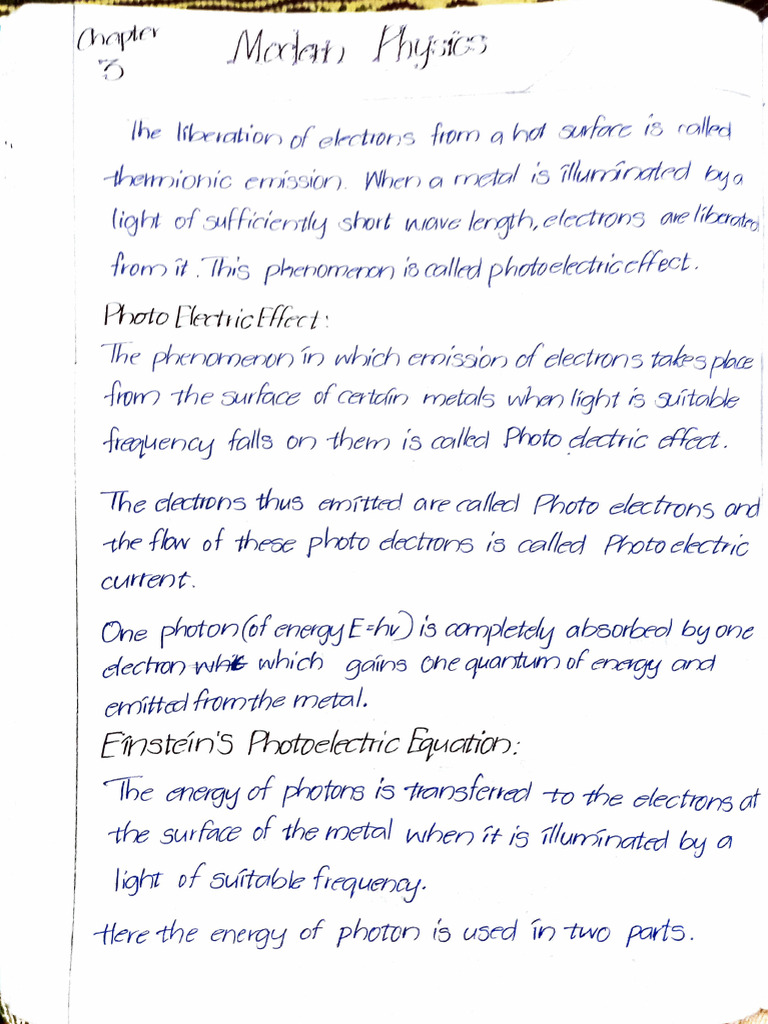 Chapter
3
Modern Physics
The liberation of electrons from a hot surface is called
thermionic emission. When a metal is illuminated by a
light of sufficiently short wave length, electrons are liberated
from it. This phenomenon is called photoelectric effect.
Photo Electric Effect:
The phenomenon in which emission of electrons takes place
from the surface of certain metals when light is suitable
frequency falls on them is called Photo electric effect.
The electrons thus emitted are called Photo electrons and
the flow of these photo electrons is called Photo electric
current.
One photon (of energy E=hν) is completely absorbed by one
electron which gains one quantum of energy and
emitted from the metal.
Einstein's Photoelectric Equation:
The energy of photons is transferred to the electrons at
the surface of the metal when it is illuminated by a
light of suitable frequency.
Here the energy of photon is used in two parts.